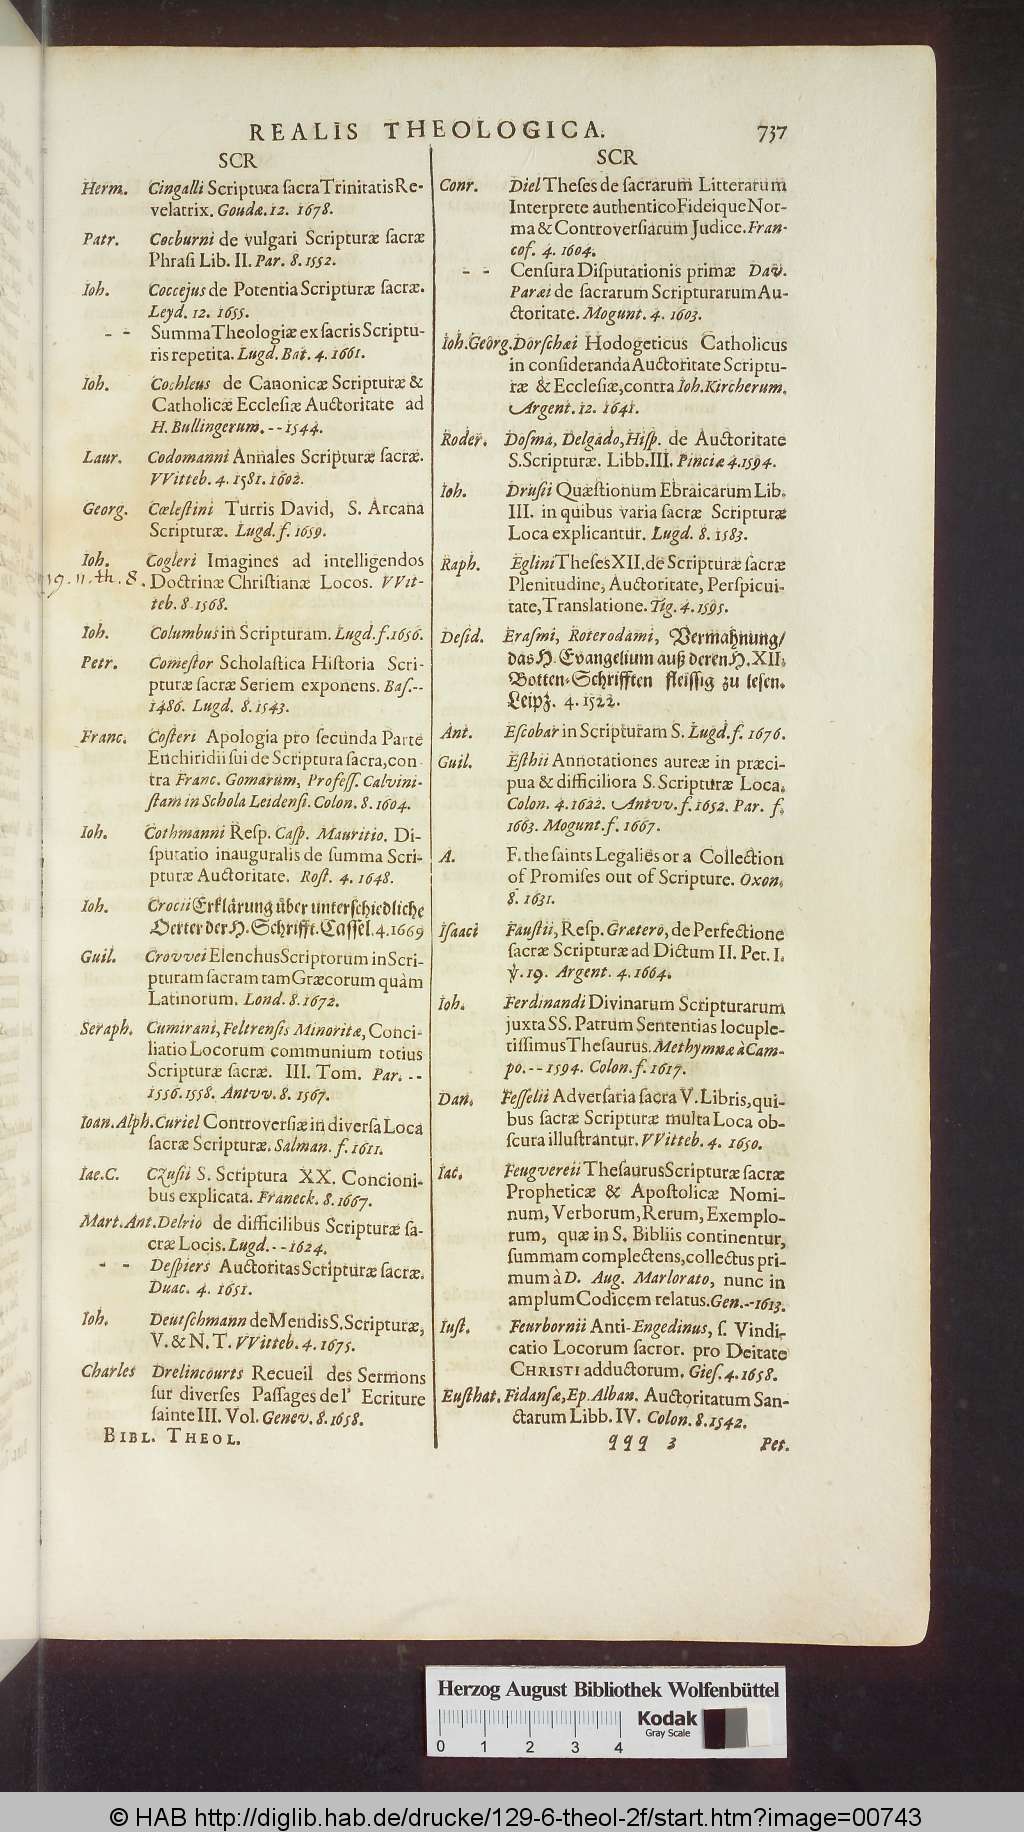 REALIS THEOLOGICA. 737
SCR
Herm. Cingalli Scriptura sacra Trinitatis Re-
velatrix. Goudæ. 12. 1678.
Patr. Cocburni de vulgari Scripturæ sacræ
Phrasi Lib. II. Par. 8. 1552.
Ioh. Coccejus de Potentia Scripturæ sacræ.
Leyd. 12. 1655.
- - Summa Theologiæ ex sacris Scriptu-
ris repetita. Lugd. Bat. 4. 1661.
Ioh. Cochleus de Canonicæ Scripturæ &
Catholicæ Ecclesiæ Auctoritate ad
H. Bullingerum. - - 1544.
Laur. Codomanni Annales Scripturæ sacræ.
VVitteb. 4. 1581. 1602.
Georg. Cœlestini Turris David, S. Arcana
Scripturæ. Lugd. f. 1659.
Ioh. Cogleri Imagines ad intelligendos
19. 11. th. 8. Doctrinæ Christianæ Locos. VVit-
teb. 8. 1568.
Ioh. Columbus in Scripturam. Lugd. f. 1656.
Petr. Comestor Scholastica Historia Scri-
pturæ sacræ Seriem exponens. Bas. - -
1486. Lugd. 8. 1543.
Franc. Costeri Apologia pro secunda Parte
Enchiridii sui de Scriptura sacra, con
tra Franc. Gomarum, Profess. Calvini-
stam in Schola Leidensi. Colon. 8. 1604.
Ioh. Cothmanni Resp. Casp. Mauritio. Di-
sputatio inauguralis de summa Scri-
pturæ Auctoritate. Rost. 4. 1648.
Ioh. Crocii Erklärung über unterschiedliche
Oerter der H. Schrifft. Cassel. 4. 1669
Guil. Crovvei Elenchus Scriptorum in Scri-
pturam sacram tam Græcorum quàm
Latinorum. Lond. 8. 1672.
Seraph. Cumirani, Feltrensis Minoritæ, Conci-
liatio Locorum communium totius
Scripturæ sacræ. III. Tom. Par. - -
1556. 1558. Antvv. 8. 1567.
Ioan. Alph. Curiel Controversiæ in diversa Loca
sacræ Scripturæ. Salman. f. 1611.
Iac. C. Czusii S. Scriptura XX. Concioni-
bus explicata. Franeck. 8. 1667.
Mart. Ant. Delrio de difficilibus Scripturæ sa-
cræ Locis. Lugd. - - 1624.
- - Despiers Auctoritas Scripturæ sacræ.
Duac. 4. 1651.
Ioh. Deutschmann de Mendis S. Scripturæ,
V. & N. T. VVitteb. 4. 1675.
Charles Drelincourts Recueil des Sermons
sur diverses Passages de l' Ecriture
sainte III. Vol. Genev. 8. 1658.
BIBL. THEOL.
SCR
Conr. Diel Theses de sacrarum Litterarum
Interprete authentico Fideique Nor-
ma & Controversiarum Judice. Fran-
cof. 4. 1604.
- - Censura Disputationis primæ Dav.
Paræi de sacrarum Scripturarum Au-
ctoritate. Mogunt. 4. 1603.
Ioh. Georg. Dorschæi Hodogeticus Catholicus
in consideranda Auctoritate Scriptu-
ræ & Ecclesiæ, contra Ioh. Kircherum.
Argent. 12. 1641.
Roder. Dosma, Delgado, Hisp. de Auctoritate
S. Scripturæ. Libb. III. Pinciæ 4. 1594.
Ioh. Drusii Quæstionum Ebraicarum Lib.
III. in quibus varia sacræ Scripturæ
Loca explicantur. Lugd. 8. 1583.
Raph. Eglini Theses XII. de Scripturæ sacræ
Plenitudine, Auctoritate, Perspicui-
tate, Translatione. Tig. 4. 1595.
Desid. Erasmi, Roterodami, Vermahnung/
das H. Evangelium auß deren H. XII.
Botten-Schrifften fleissig zu lesen.
Leipz. 4. 1522.
Ant. Escobar in Scripturam S. Lugd. f. 1676.
Guil. Esthii Annotationes aureæ in præci-
pua & difficiliora S. Scripturæ Loca.
Colon. 4. 1622. Antvv. f. 1652. Par. f.
1663. Mogunt. f. 1667.
A. F. the saints Legalies or a Collection
of Promises out of Scripture. Oxon.
8. 1631.
Isaaci Faustii, Resp. Grætero, de Perfectione
sacræ Scripturæ ad Dictum II. Pet. I.
℣. 19. Argent. 4. 1664.
Ioh. Ferdinandi Divinarum Scripturarum
juxta SS. Patrum Sententias locuple-
tissimus Thesaurus. Methymnæ à Cam-
po. - - 1594. Colon. f. 1617.
Dan. Fesselii Adversaria sacra V. Libris, qui-
bus sacræ Scripturæ multa Loca ob-
scura illustrantur. VVitteb. 4. 1650.
Iac. Feugvereii Thesaurus Scripturæ sacræ
Propheticæ & Apostolicæ Nomi-
num, Verborum, Rerum, Exemplo-
rum, quæ in S. Bibliis continentur,
summam complectens, collectus pri-
mum à D. Aug. Marlorato, nunc in
amplum Codicem relatus. Gen. - - 1613.
Iust. Feurbornii Anti-Engedinus, s. Vindi-
catio Locorum sacror. pro Deitate
CHRISTI adductorum. Gies. 4. 1658.
Eusthat. Fidansæ, Ep. Alban. Auctoritatum San-
ctarum Libb. IV. Colon. 8. 1542.
qqq 3 Pet.
Herzog August Bibliothek Wolfenbüttel
Kodak
Gray Scale
0 1 2 3 4
© HAB http://diglib.hab.de/drucke/129-6-theol-2f/start.htm?image=00743